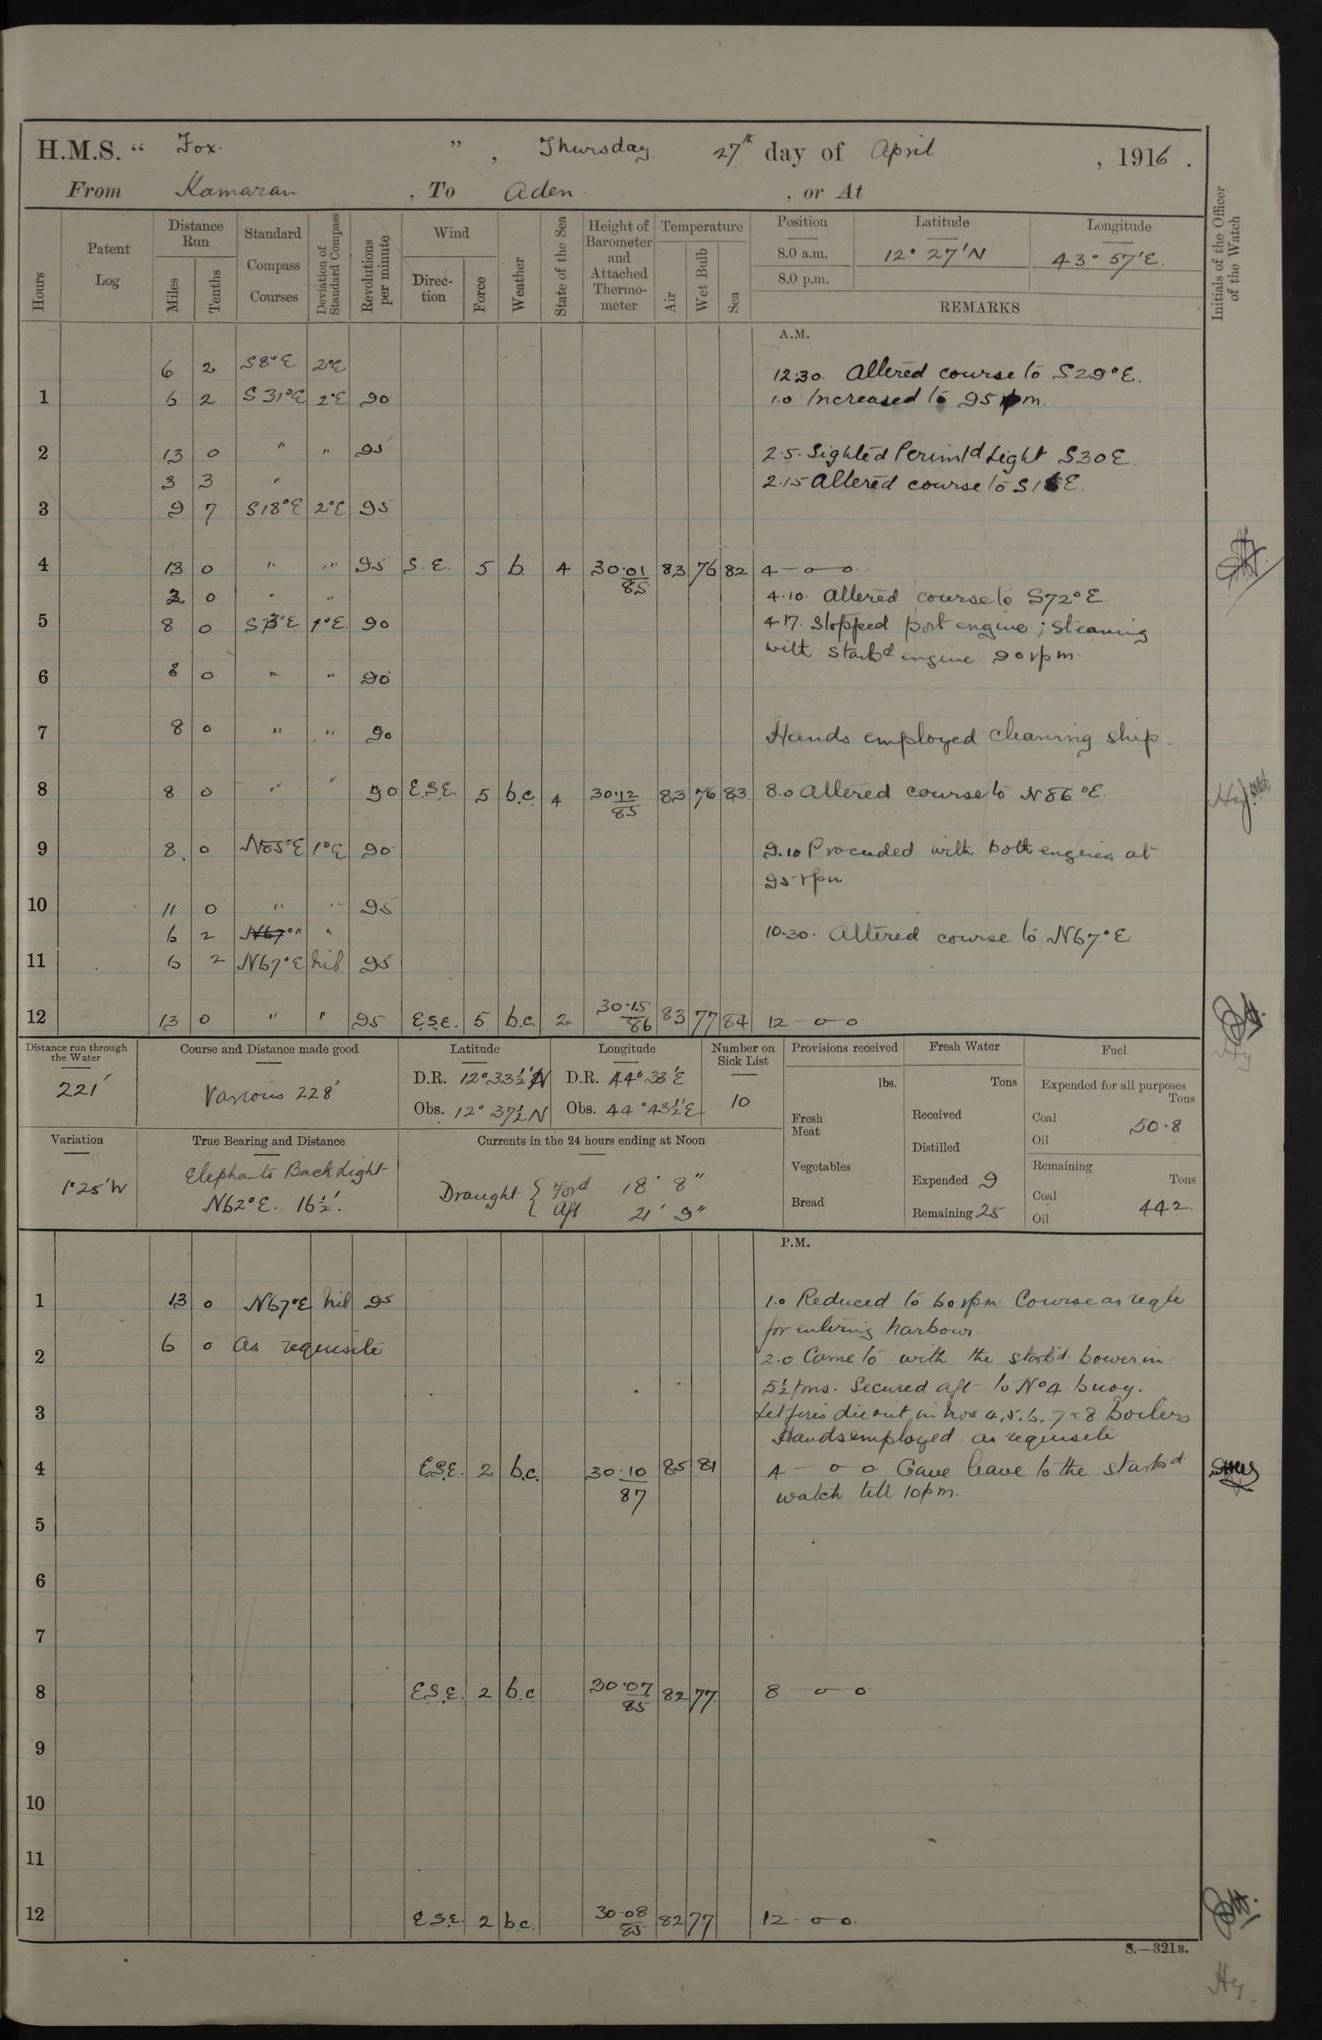 H.M.S. “ Fox. ”, Thursday 27th day of April , 1916 .
From Kamaran , To Aden , or At
Hours
Patent Log
Distance Run
Miles
Tenths
Standard Compass Courses
Deviation of Standard Compass
Revolutions per minute
Wind
Direction
Force
Weather
State of the Sea
Height of Barometer and Attached Thermometer
Temperature
Air
Wet Bulb
Sea
Position
Latitude
Longitude
8.0 a.m. 12° 27' N 43° 57' E.
8.0 p.m.
REMARKS
Initials of the Officer of the Watch
A.M.
6 2 S8°E 2°E 12.30. Altered course to S29°E.
1 6 2 S31°E 2°E 90 1.0 Increased to 95 rpm.
2 13 0 " " 95 2.5. Sighted Perim Id Light S30E
3 3 " 2.15 Altered course to S16E.
3 9 7 S18°E 2°E 95
4 13 0 " " 95 S.E. 5 b 4 30.01/85 83 76 82 4 — o — o
2 0 " " 4.10. Altered course to S72°E
5 8 0 S73°E 1°E 90 4.17. Stopped port engine; steaming
with starbd engine 90 rpm.
6 8 0 " " 90
7 8 0 " " 90 Hands employed cleaning ship.
8 8 0 " " 90 E.S.E. 5 b.c. 4 30.12/85 83 76 83 8.0 Altered course to N86°E
9 8 0 N85°E 1°E 90 9.10 Proceeded with both engines at
95 rpm
10 11 0 " " 95
6 2 N67° " " 10.30. Altered course to N67°E
11 6 2 N67°E nil 95
12 13 0 " " 95 E.S.E. 5 b.c. 2 30.15/86 83 77 84 12 — o — o
Distance run through the Water
221'
Course and Distance made good
Various 228'
Latitude
D.R. 12° 33½' N
Obs. 12° 37½' N
Longitude
D.R. 44° 38' E
Obs. 44° 43½' E
Number on Sick List
10
Provisions received
lbs.
Fresh Meat
Vegetables
Bread
Fresh Water
Tons
Received
Distilled
Expended 9
Remaining 25
Fuel
Expended for all purposes
Tons
Coal 50.8
Oil
Remaining
Tons
Coal 442
Oil
Variation
1°25'W
True Bearing and Distance
Elephants Back Light
N62°E. 16½'.
Currents in the 24 hours ending at Noon
Draught { Ford 18' 8"
Aft 21' 9"
P.M.
1 13 0 N67°E nil 95 1.0 Reduced to 60 rpm. Course as reqte
for entering harbour
2 6 0 as requisite
2.0 Came to with the starbd bower in
5½ fms. Secured aft to No 4 buoy.
3 Let fires die out in nos 4, 5, 6, 7 & 8 boilers
Hands employed as requisite
4 E.S.E. 2 b.c. 30.10/87 85 81 4 — o o Gave leave to the starbd
watch till 10pm.
5
6
7
8 E.S.E. 2 b.c 30.07/85 82 77 8 — o — o
9
10
11
12 E.S.E. 2 b.c. 30.08/85 82 77 12 — o — o.
S.—321B.
Hy